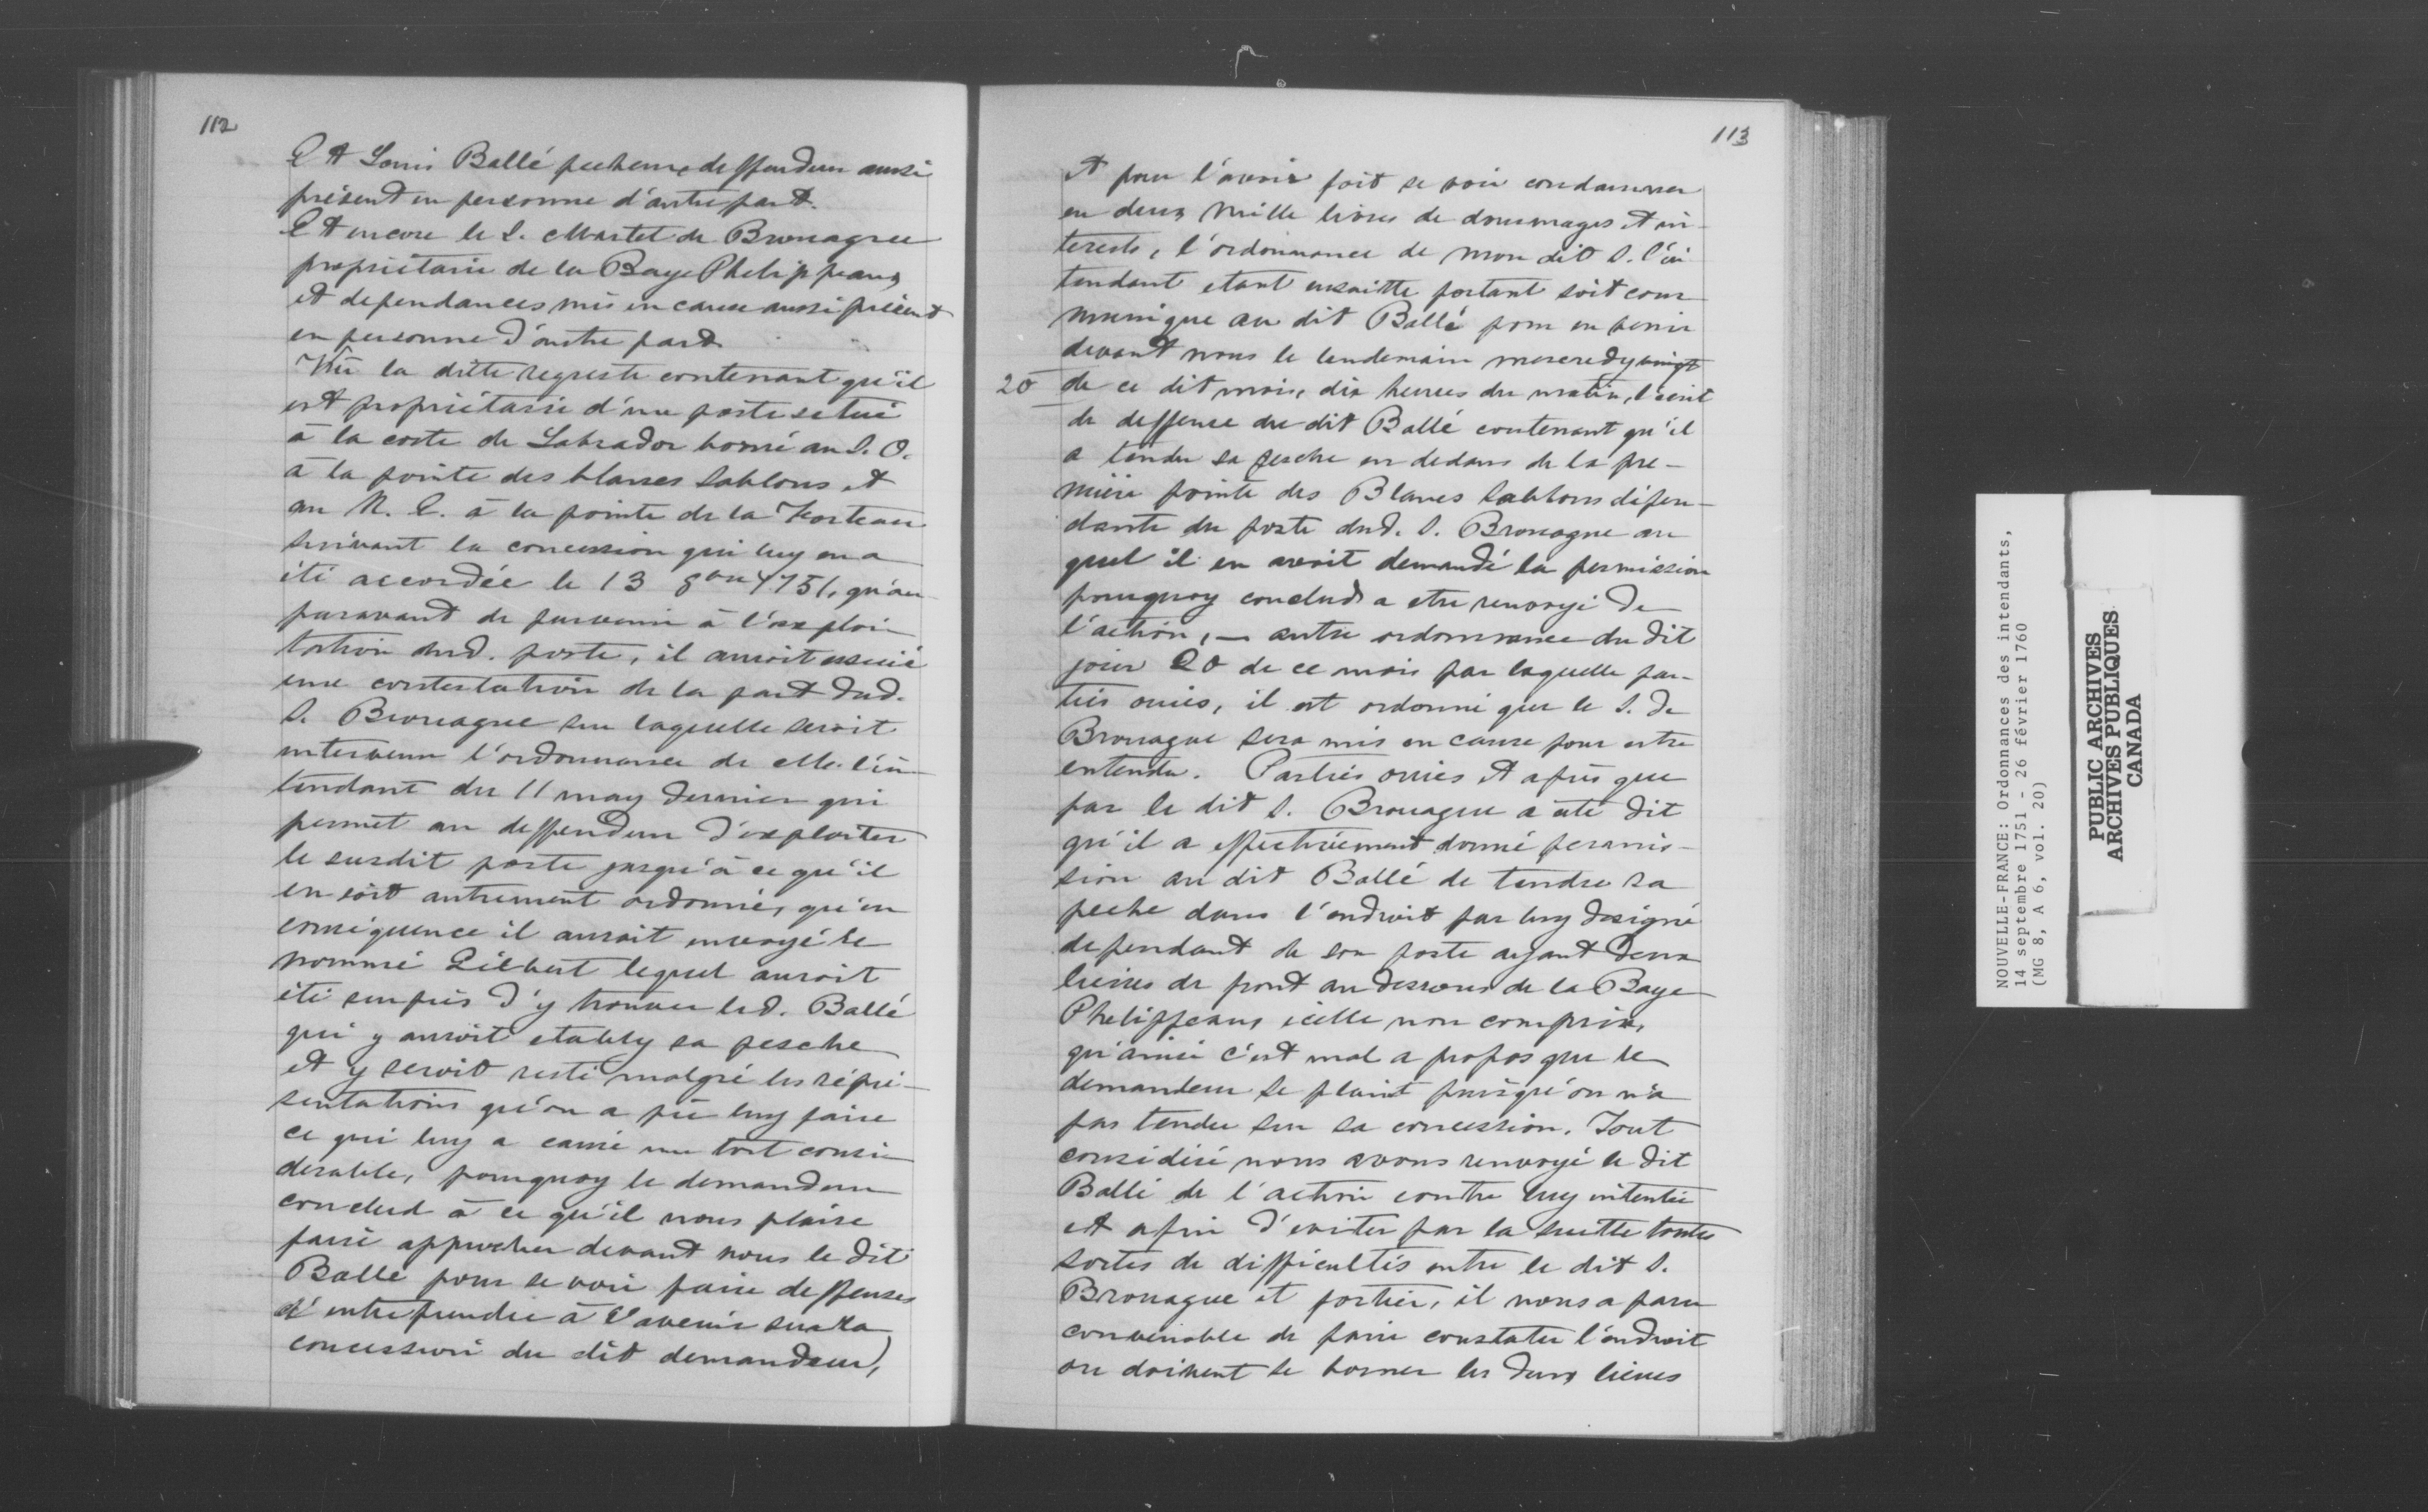 112
Et Louis Ballé pecheur, deffendeur aussi
présent en personne d'autre part.
Et encore le S. Martel de Brouague
propriétaire de la Baye Phelippeaux
et dependances mis en cause aussi présent
en personne d'autre part.
Vû la ditte requeste contenant qu'il
est propriétaire d'un poste situé
à la coste de Labrador borné au S. O.
à la pointe des blancs Sablons et
au N. E. à la pointe de la Forteau
suivant la concession qui luy en a
été accordée le 13 8bre 1751, qu'au
paravant de parvenir à l'exploi
tation dud. poste, il auroit essuié
une contestation de la part dud.
S. Brouague sur laquelle seroit
intervenu l'ordonnance de M. l'in
tendant du 11 may dernier qui
permet au deffendeur d'exploiter
le susdit poste jusqu'à ce qu'il
en soit autrement ordonné, qu'en
conséquence il auroit envoyé le
nommé Gilbert lequel auroit
été surpris d'y trouver led. Ballé
qui y auroit etably sa pesche
et y seroit resté malgré les répré-
sentations qu'on a pû luy faire
ce qui luy a causé un tort consi
derable, pourquoy le demandeur
conclud à ce qu'il nous plaise
faire approcher devant nous le dit
Ballé pour se voir faire deffenses
d'entreprendre à l'avenir sur la
concession du dit demandeur,
113
et pour l'avoir fait se voir condamner
en deux mille livres de dommages et in-
terests, l'ordonnance de mon dit S. l'in
tendant etant ensuitte portant soit com
muniqué au dit Ballé pour en venir
devant nous le lendemain mercredy vingt
20 de ce dit mois, dix heures du matin, l'ecrit
de deffense du dit Ballé contenant qu'il
a tendu sa pesche en dedans de la pre-
mière pointe des Blancs Sablons dépen-
dante du poste dud. S. Brouague au
quel il en avoit demandé la permission
pourquoy conclud a etre renvoyé de
l'action, — autre ordonnance du dit
jour 20 de ce mois par laquelle par-
ties ouies, il est ordonné que le S. de
Brouague sera mis en cause pour estre
entendu. Parties ouies et après que
par le dit S. Brouague a été dit
qu'il a effectivement donné permis-
sion au dit Ballé de tendre sa
peche dans l'endroit par luy designé
dependant de son poste ayant deux
lieues de front au dessous de la Baye
Phelippeaux icelle non comprise,
qu'ainsi c'est mal a propos que le
demandeur se plaint puisqu'on n'a
pas tendu sur sa concession. Tout
considéré nous avons renvoyé le dit
Ballé de l'action contre luy intentée
et afin d'eviter par la suitte toutes
sortes de difficultés entre le dit S.
Brouague et fortier, il nous a paru
convenable de faire constater l'endroit
ou doivent se borner les deux lieues
NOUVELLE-FRANCE: Ordonnances des intendants,
14 septembre 1751 - 26 février 1760
(MG 8, A 6, vol. 20)
PUBLIC ARCHIVES
ARCHIVES PUBLIQUES
CANADA